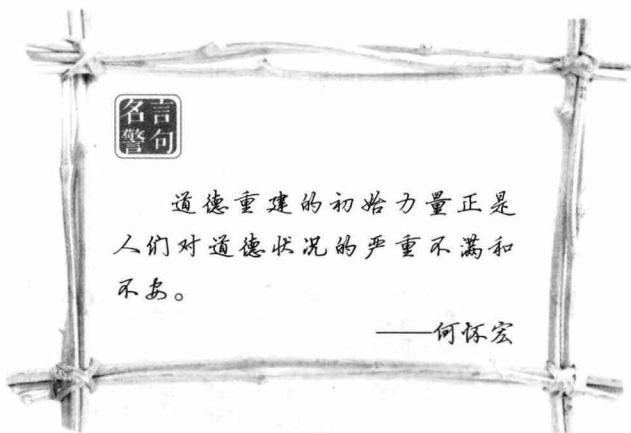 名言
警句
道德重建的初始力量正是
人们对道德状况的严重不满和
不安。
——何怀宏